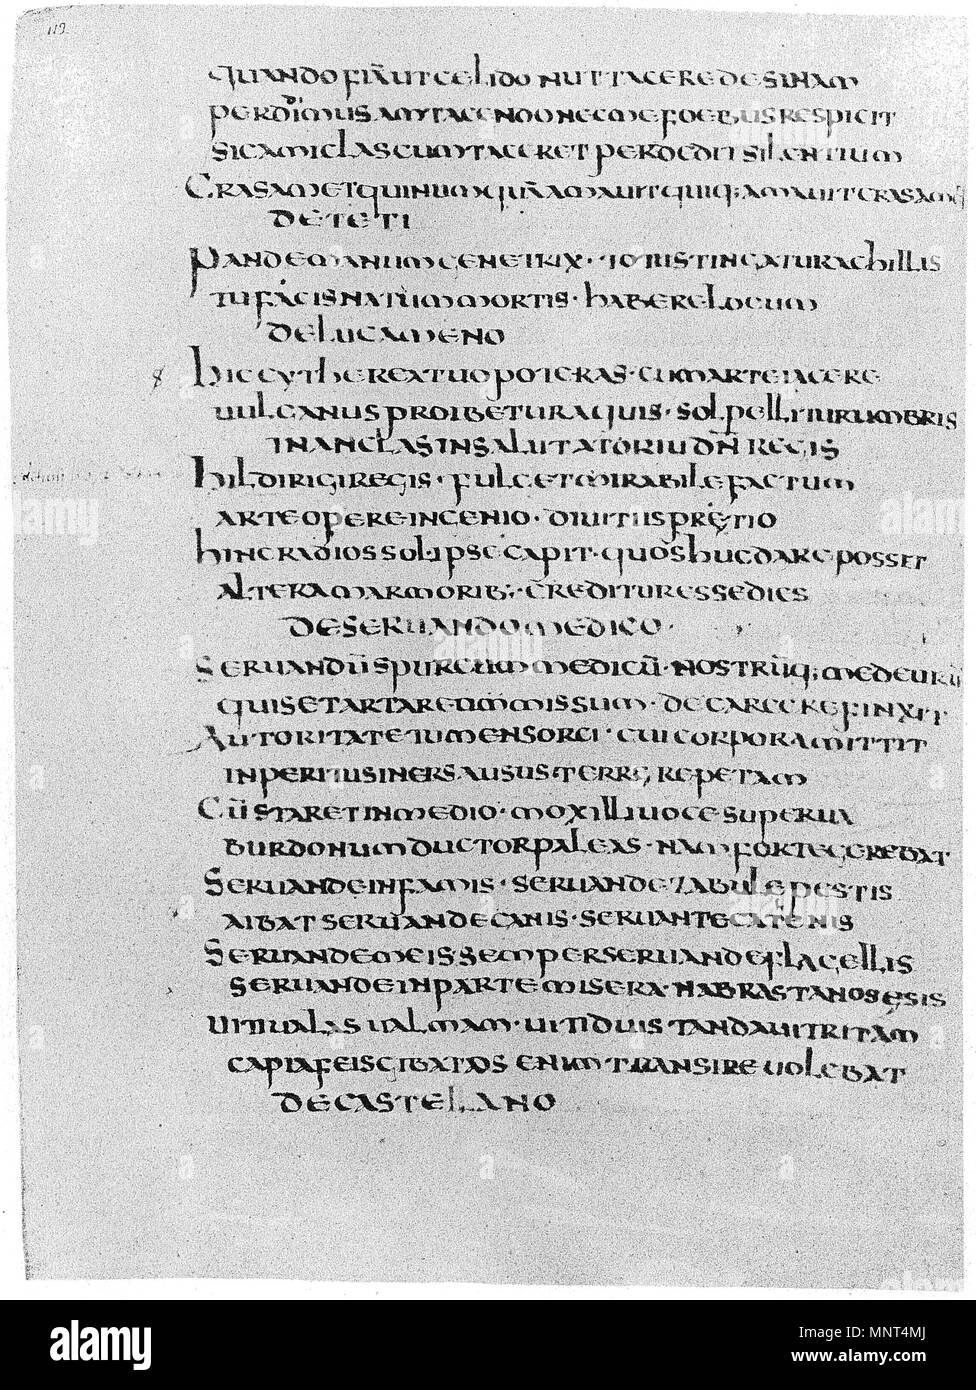 119
QUANDO FIĀ UT CELIDON UT TACERE DESINAM
PERDIDIMUSAM TACENDO NEC ME FOEBUS RESPICIT
SIC AMICLAS CUM TACERET PERDEDIT SILENTIUM
CRAS AMET QUI NUMQUĀ AMAUIT QUIQ; AMAUIT CRAS AMET
DE TETI
PANDE MANUM GENETRIX · TINGATUR ACHILLIS
TU FACIS NATUM MORTIS · HABERE LOCUM
DE LUCAMENO
HIC CYTHEREA TUO POTERAS · CUMARTE IACERE
UULCANUS PROIBETUR AQUIS · SOL PELLITUR UMBRIS
IN ANCLAS IN SALUTATORIU DNI REGIS
HILDIRIGI REGIS · FULCET MIRABILE FACTUM
ARTE OPERE INGENIO · DIUITIIS PRETIO
HINC RADIOS SOL IPSE CAPIT · QUOS HUC DARE POSSET
ALTERA MARMORIB; · CREDITUR ESSE DIES
DE SERUANDO MEDICO ·
SERUANDUS PURCUM MEDICU · NOSTRUQ; MEDEURU
QUIS E TARTAREUM MISSUM · DE CARCERE FINXIT
AUTORITATE TUMENS ORCI · CUI CORPORA MITTIT
INPERITUS INERS AUSUS · TERRE REPETAM
CU STARET IN MEDIO · MOX ILLI UOCE SUPERUA
BURDONUM DUCTOR PALEAS · NAM FORTE GEREBAT
SERUANDE INFAMIS · SERUANDE ZABULE PESTIS
AIBAT SERUANDE CANIS · SERUANTE CATENIS
SERUANDE MEIS SEMPER SERUANDE FLAGELLIS
SERUANDE IN PARTE MISERA ·
UITIUALAS UALMAM · UITI DUIS TANDAUIT RITAM
ENIM TRANSIRE UOLEBAT
DE CASTELLANO
alamy
Image ID: MNT4MJ
www.alamy.com